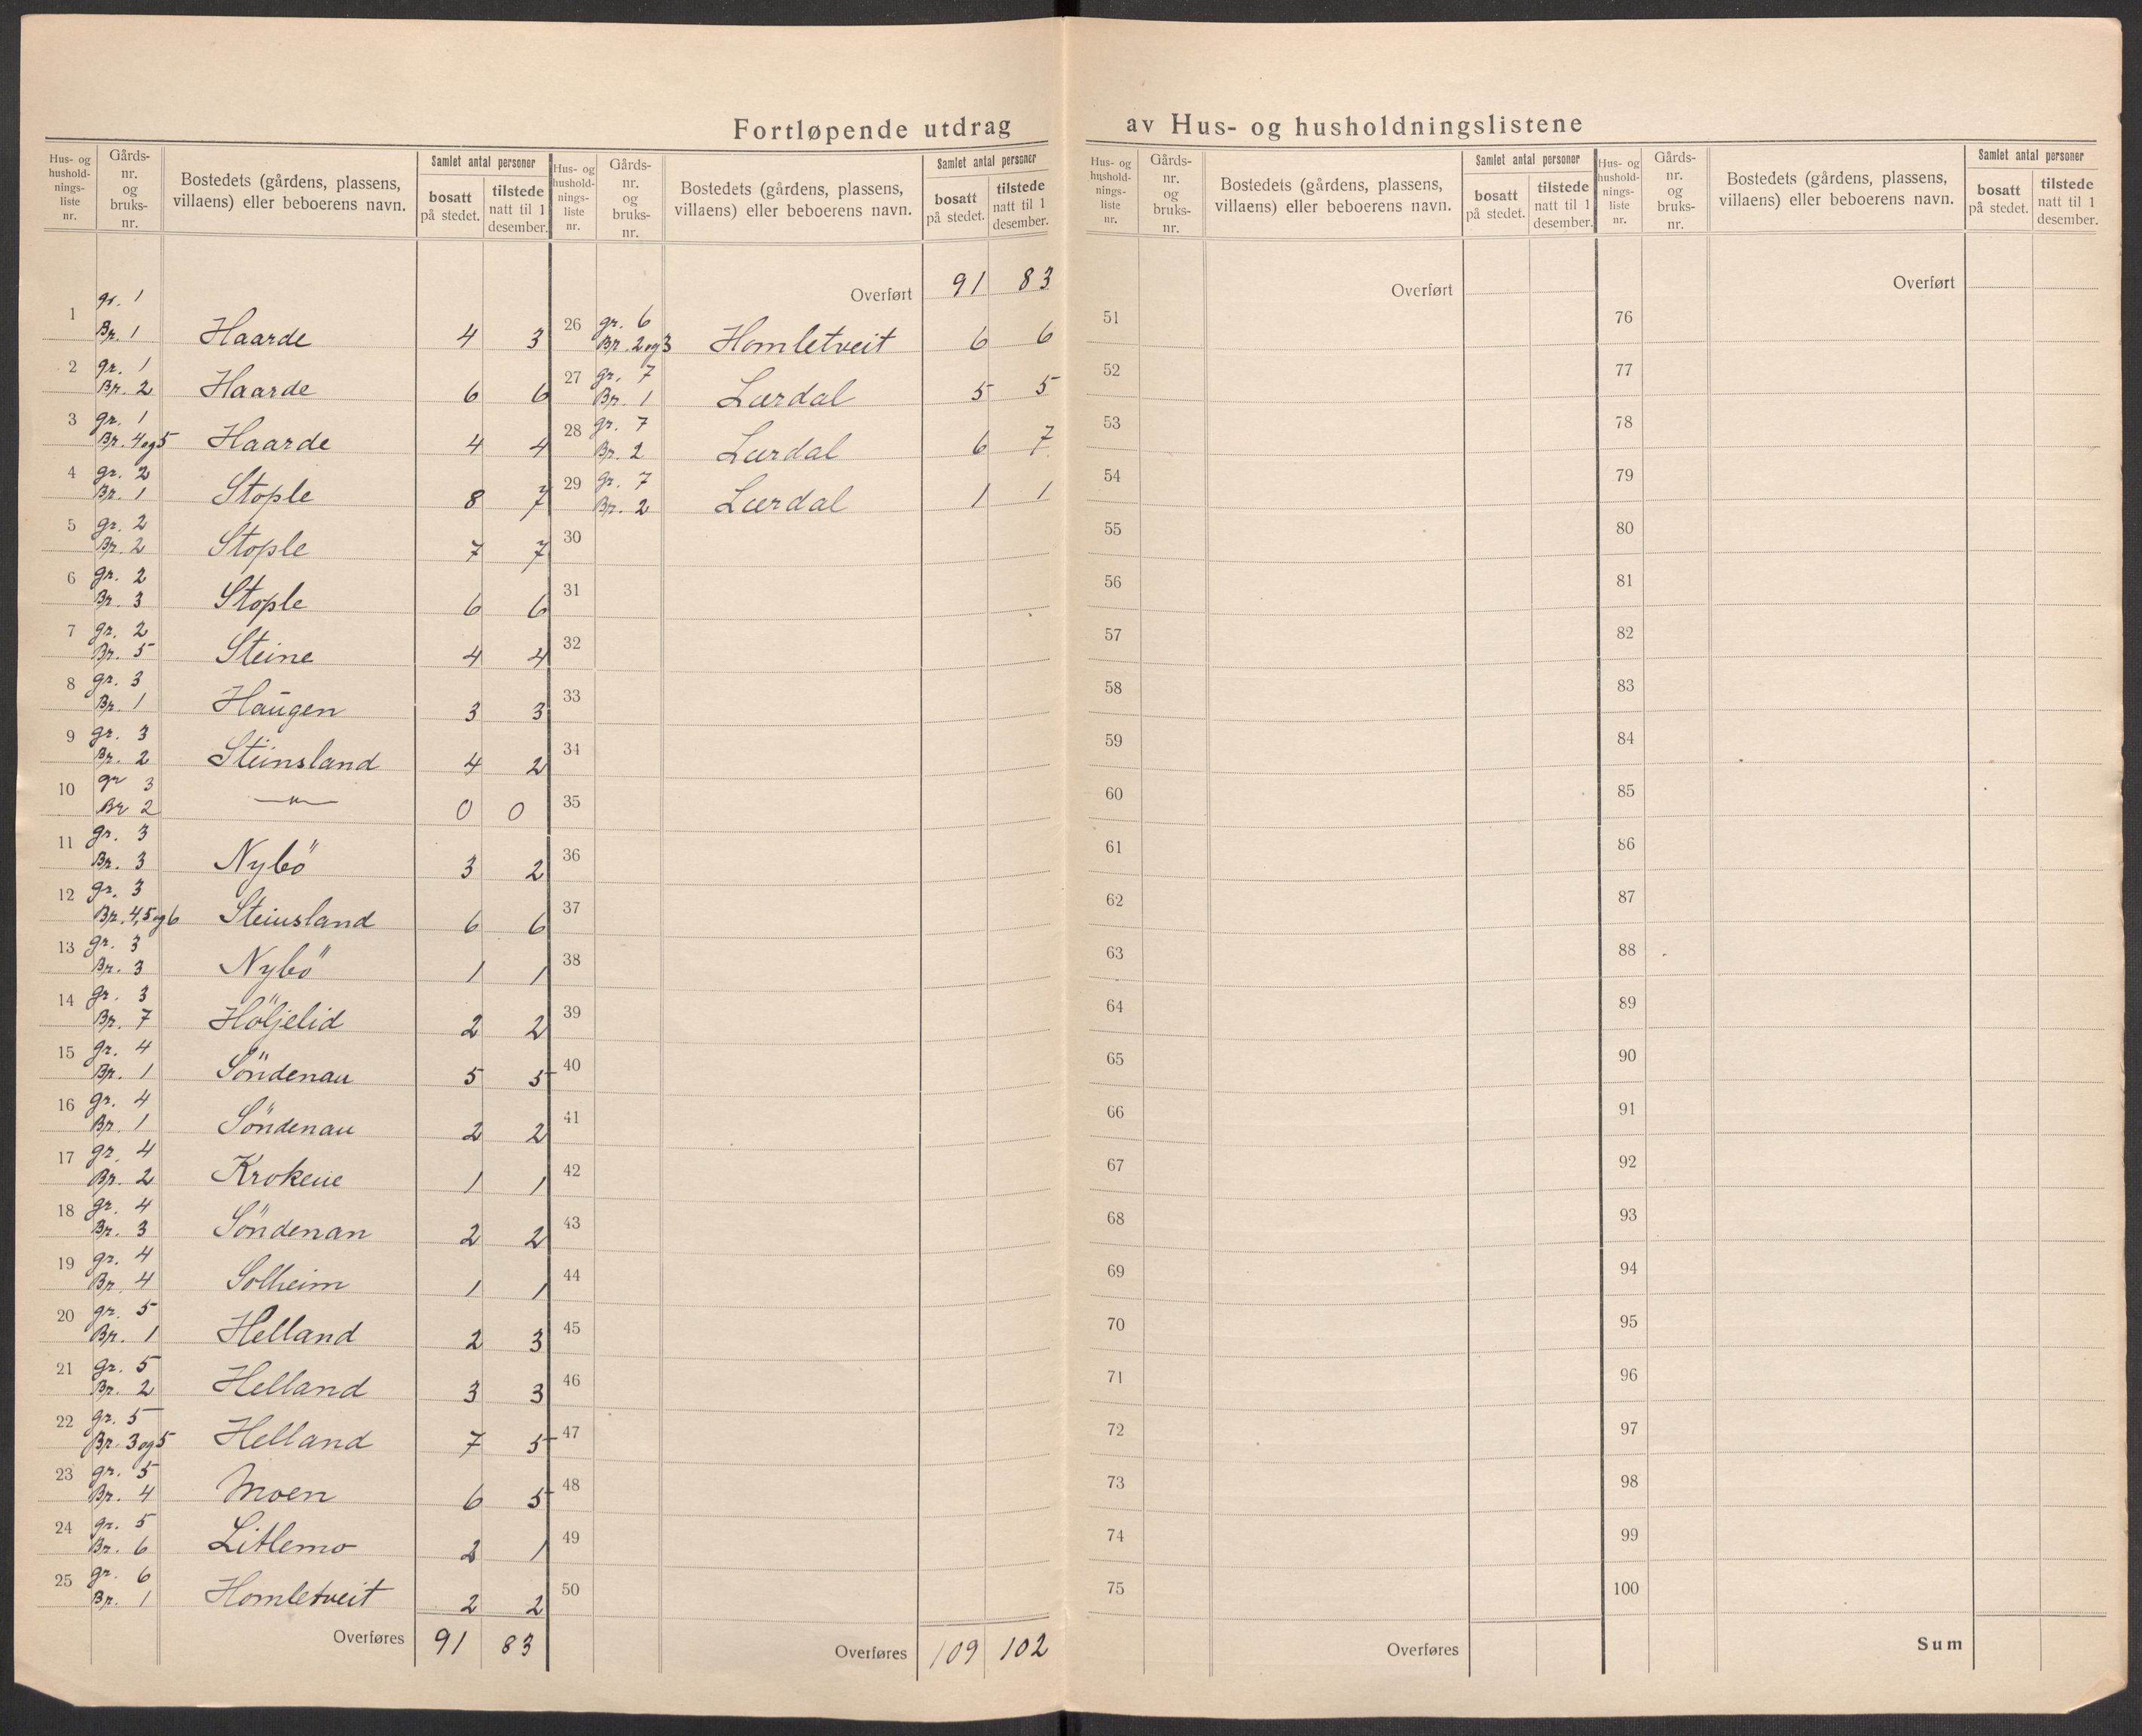 Fortløpende utdrag av Hus- og husholdningslistene
Hus- og husholdnings-liste nr. | Gårds-nr. og bruks-nr. | Bostedets (gårdens, plassens, villaens) eller beboerens navn. | Samlet antal personer: bosatt på stedet. | tilstede natt til 1 desember.
1 gr. 1 Br. 1 Haarde 4 3
2 gr. 1 Br. 2 Haarde 6 6
3 gr. 1 Br. 4 og 5 Haarde 4 4
4 gr. 2 Br. 1 Stople 8 7
5 gr. 2 Br. 2 Stople 7 7
6 gr. 2 Br. 3 Stople 6 6
7 gr. 2 Br. 5 Steine 4 4
8 gr. 3 Br. 1 Haugen 3 3
9 gr. 3 Br. 2 Steinsland 4 2
10 gr 3 Br 2 —"— 0 0
11 gr. 3 Br. 3 Nybö 3 2
12 gr. 3 Br. 4, 5 og 6 Steinsland 6 6
13 gr. 3 Br. 3 Nybö 1 1
14 gr. 3 Br. 7 Höljelid 2 2
15 gr. 4 Br. 1 Söndenau 5 5
16 gr. 4 Br. 1 Söndenau 2 2
17 gr. 4 Br. 2 Krokene 1 1
18 gr. 4 Br. 3 Söndenan 2 2
19 gr. 4 Br. 4 Solheim 1 1
20 gr. 5 Br. 1 Helland 2 3
21 gr. 5 Br. 2 Helland 3 3
22 gr. 5 Br. 3 og 5 Helland 7 5
23 gr. 5 Br. 4 Moen 6 5
24 gr. 5 Br. 6 Litlemo 2 1
25 gr. 6 Br. 1 Homletveit 2 2
Overføres 91 83
Hus- og husholdnings-liste nr. | Gårds-nr. og bruks-nr. | Bostedets (gårdens, plassens, villaens) eller beboerens navn. | Samlet antal personer: bosatt på stedet. | tilstede natt til 1 desember.
Overført 91 83
26 gr. 6 Br. 2 og 3 Homletveit 6 6
27 gr. 7 Br. 1 Lærdal 5 5
28 gr. 7 Br. 2 Lærdal 6 7
29 gr. 7 Br. 2 Lærdal 1 1
30
31
32
33
34
35
36
37
38
39
40
41
42
43
44
45
46
47
48
49
50
Overføres 109 102
Hus- og husholdnings-liste nr. | Gårds-nr. og bruks-nr. | Bostedets (gårdens, plassens, villaens) eller beboerens navn. | Samlet antal personer: bosatt på stedet. | tilstede natt til 1 desember.
Overført
51
52
53
54
55
56
57
58
59
60
61
62
63
64
65
66
67
68
69
70
71
72
73
74
75
Overføres
Hus- og husholdnings-liste nr. | Gårds-nr. og bruks-nr. | Bostedets (gårdens, plassens, villaens) eller beboerens navn. | Samlet antal personer: bosatt på stedet. | tilstede natt til 1 desember.
Overført
76
77
78
79
80
81
82
83
84
85
86
87
88
89
90
91
92
93
94
95
96
97
98
99
100
Sum